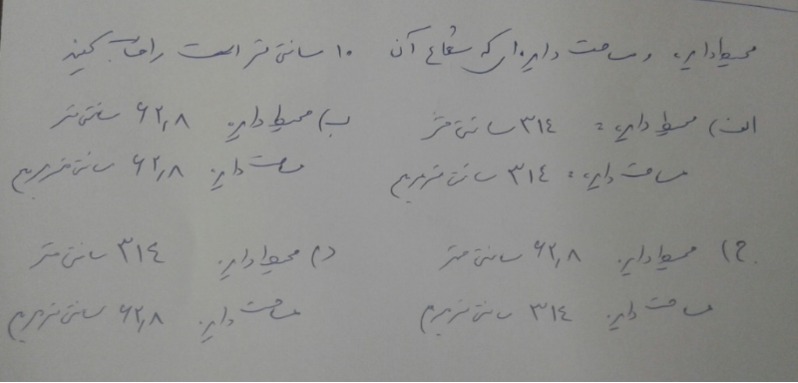 محیط دایره و مساحت دایره‌ای که شعاع آن ۱۰ سانتی متر است را حساب کنید
الف) محیط دایره: ۳۱۴ سانتی متر ب) محیط دایره ۶۲,۸ سانتی متر
مساحت دایره: ۳۱۴ سانتی متر مربع مساحت دایره ۶۲,۸ سانتی متر مربع
ج) محیط دایره ۶۲,۸ سانتی متر د) محیط دایره ۳۱۴ سانتی متر
مساحت دایره ۳۱۴ سانتی متر مربع مساحت دایره ۶۲,۸ سانتی متر مربع